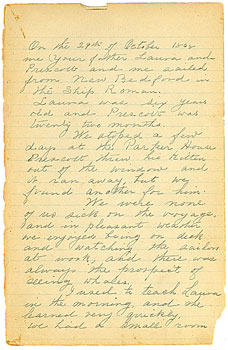 On the 29th of October
me Your father Laura and
Prescott and me sailed
from New Bedford in
the Ship Roman.
Laura was six years
old and Prescott was
twenty two months
We stoped a few
days at the Parker House
Prescott threw his kitten
out of the window and
it ran away but we
found another for him.
We were none
of us sick on the voyage,
and in pleasant weather
we enjoyed being on deck
and watching the sailors
at work, and there was
always the prospect of
seeing whales.
I used to teach Laura
in the morning, and she
learned very quickly,
we had a small room